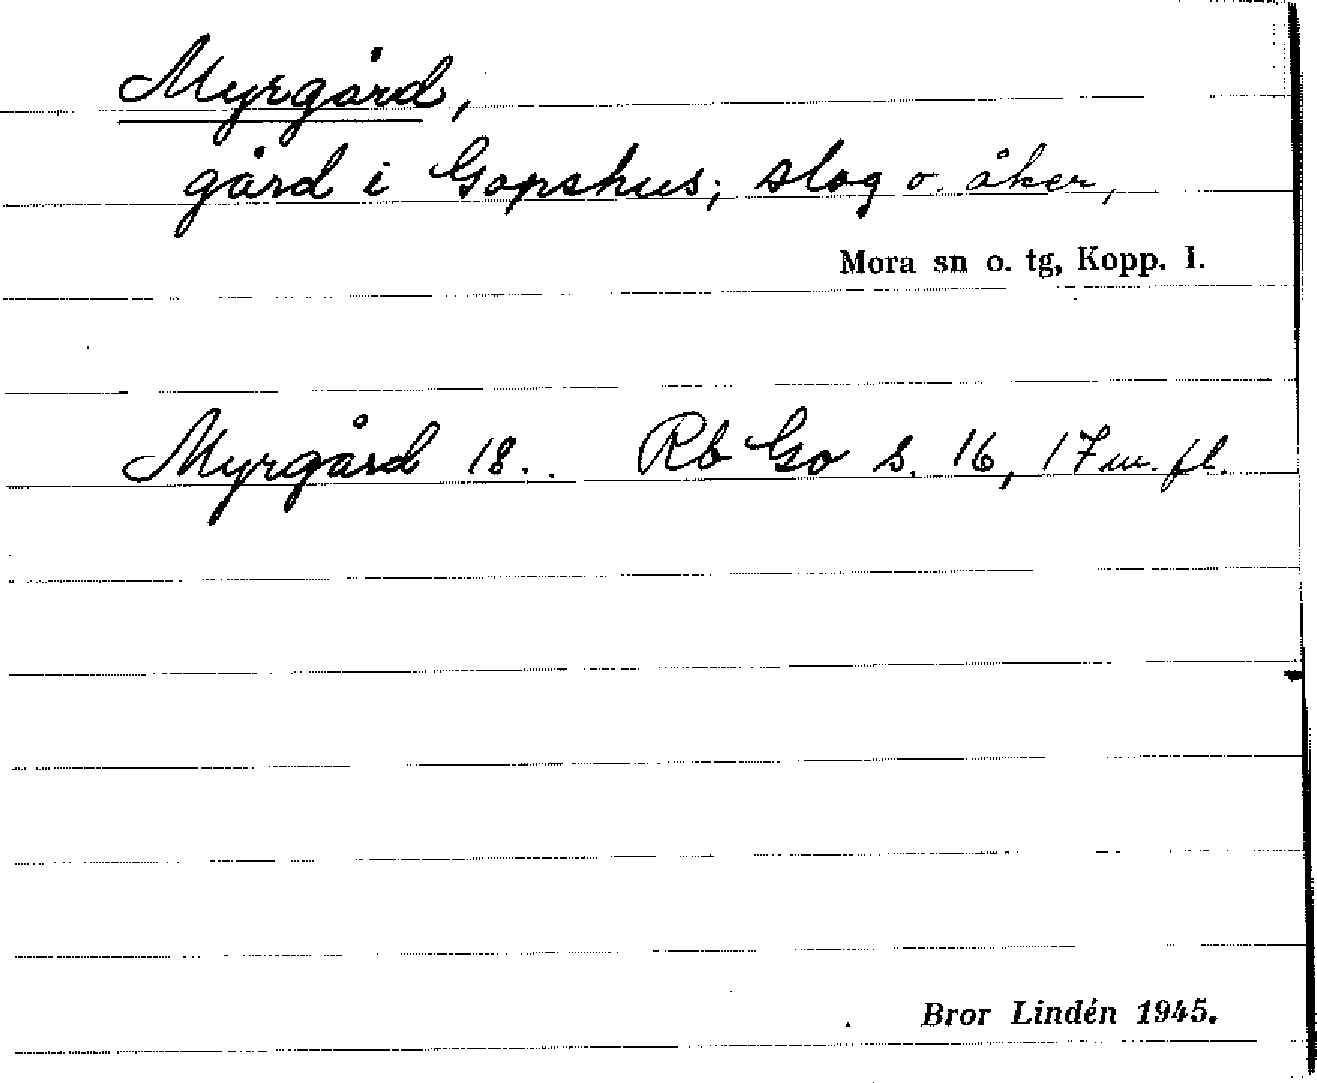 Myrgård,
gård i Gopshus; slog o. åker,
Mora sn o. tg, Kopp. l.
Myrgård 18.. Rb Go s. 16, 17 m. fl.
Bror Lindén 1945.